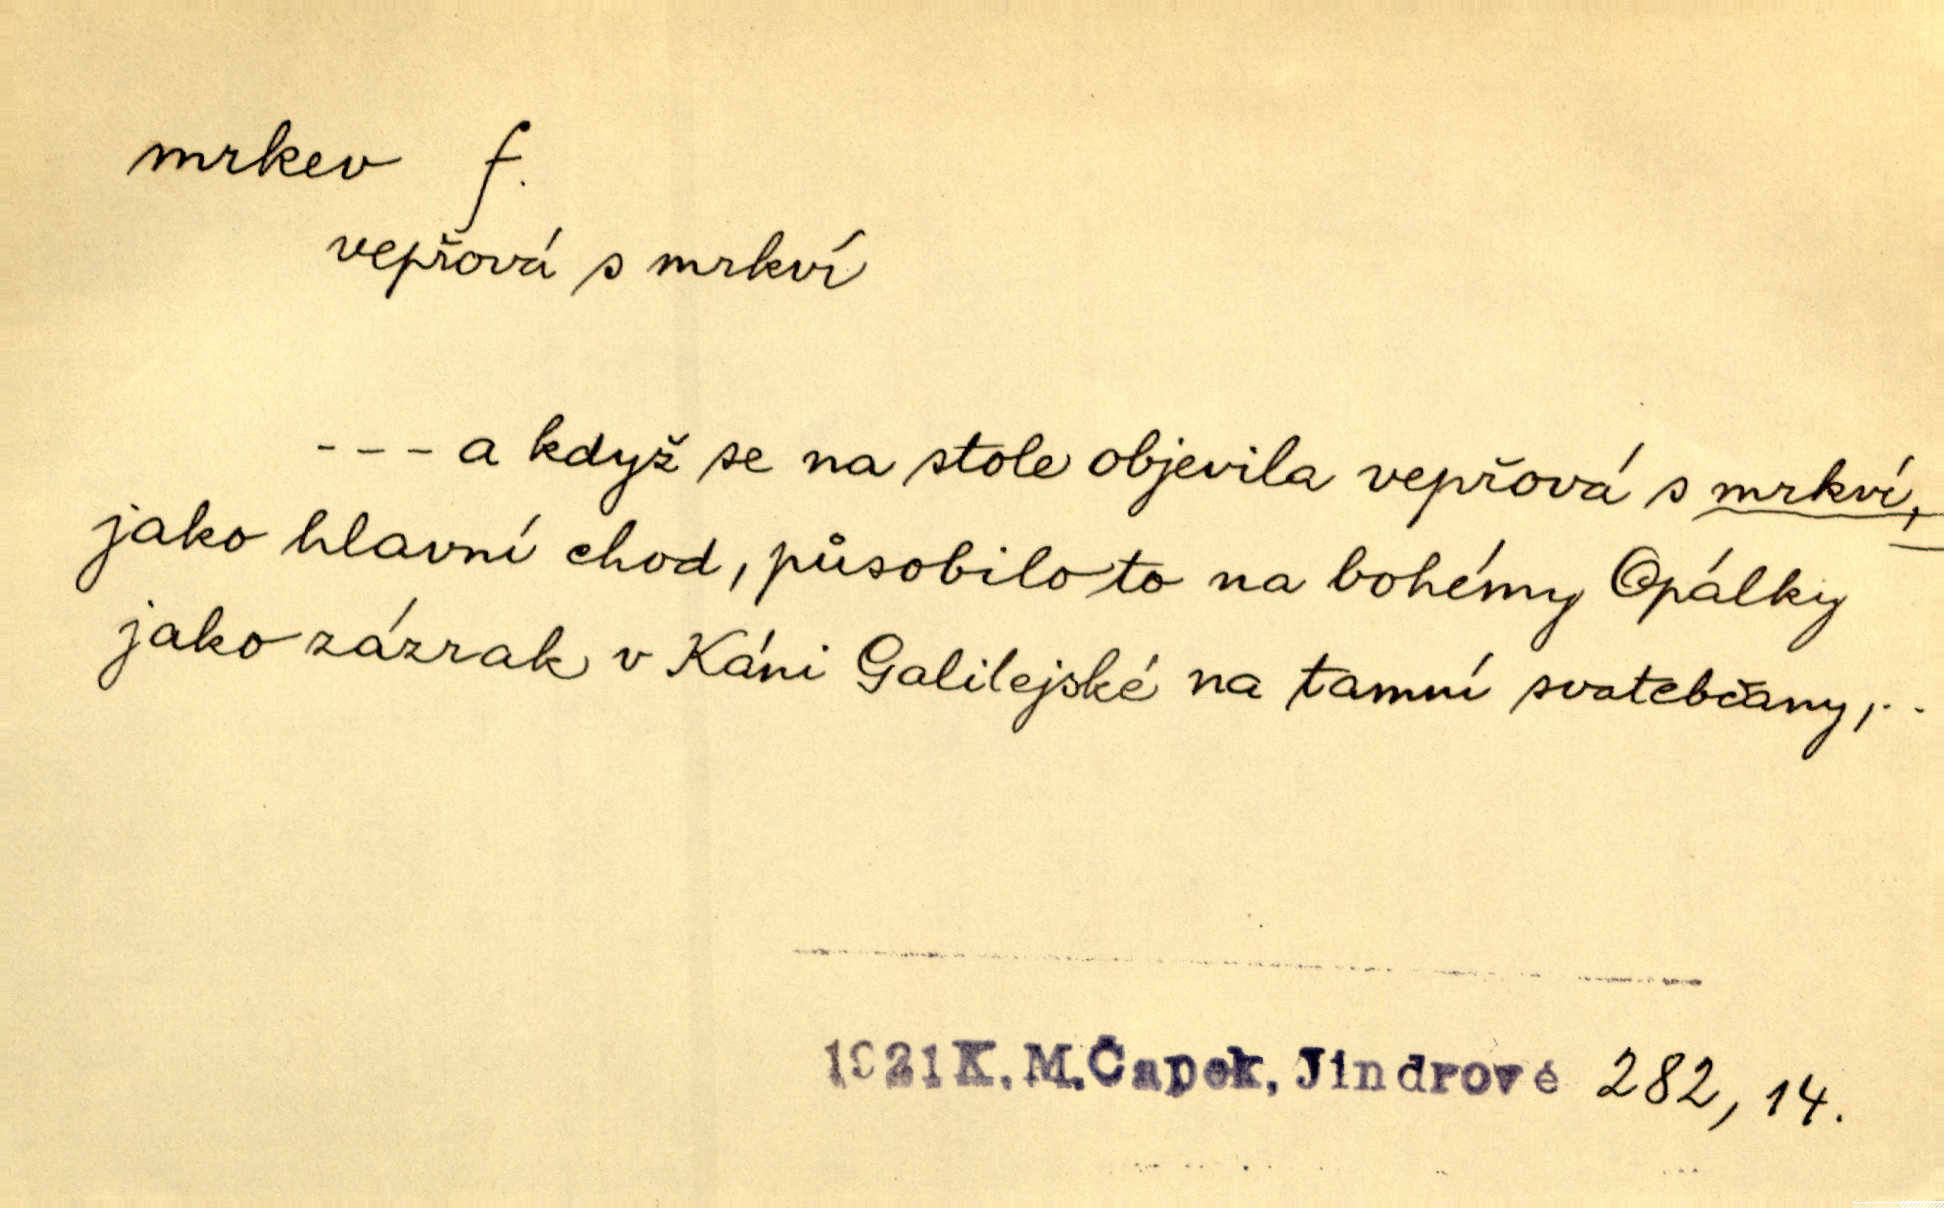 mrkev f.
vepřová s mrkví
- - - a když se na stole objevila vepřová s mrkví,
jako hlavní chod, působilo to na bohémy Opálky
jako zázrak v Káni Galilejské na tamní svatebčany,..
1921 K. M. Čapek, Jindrové 282, 14.